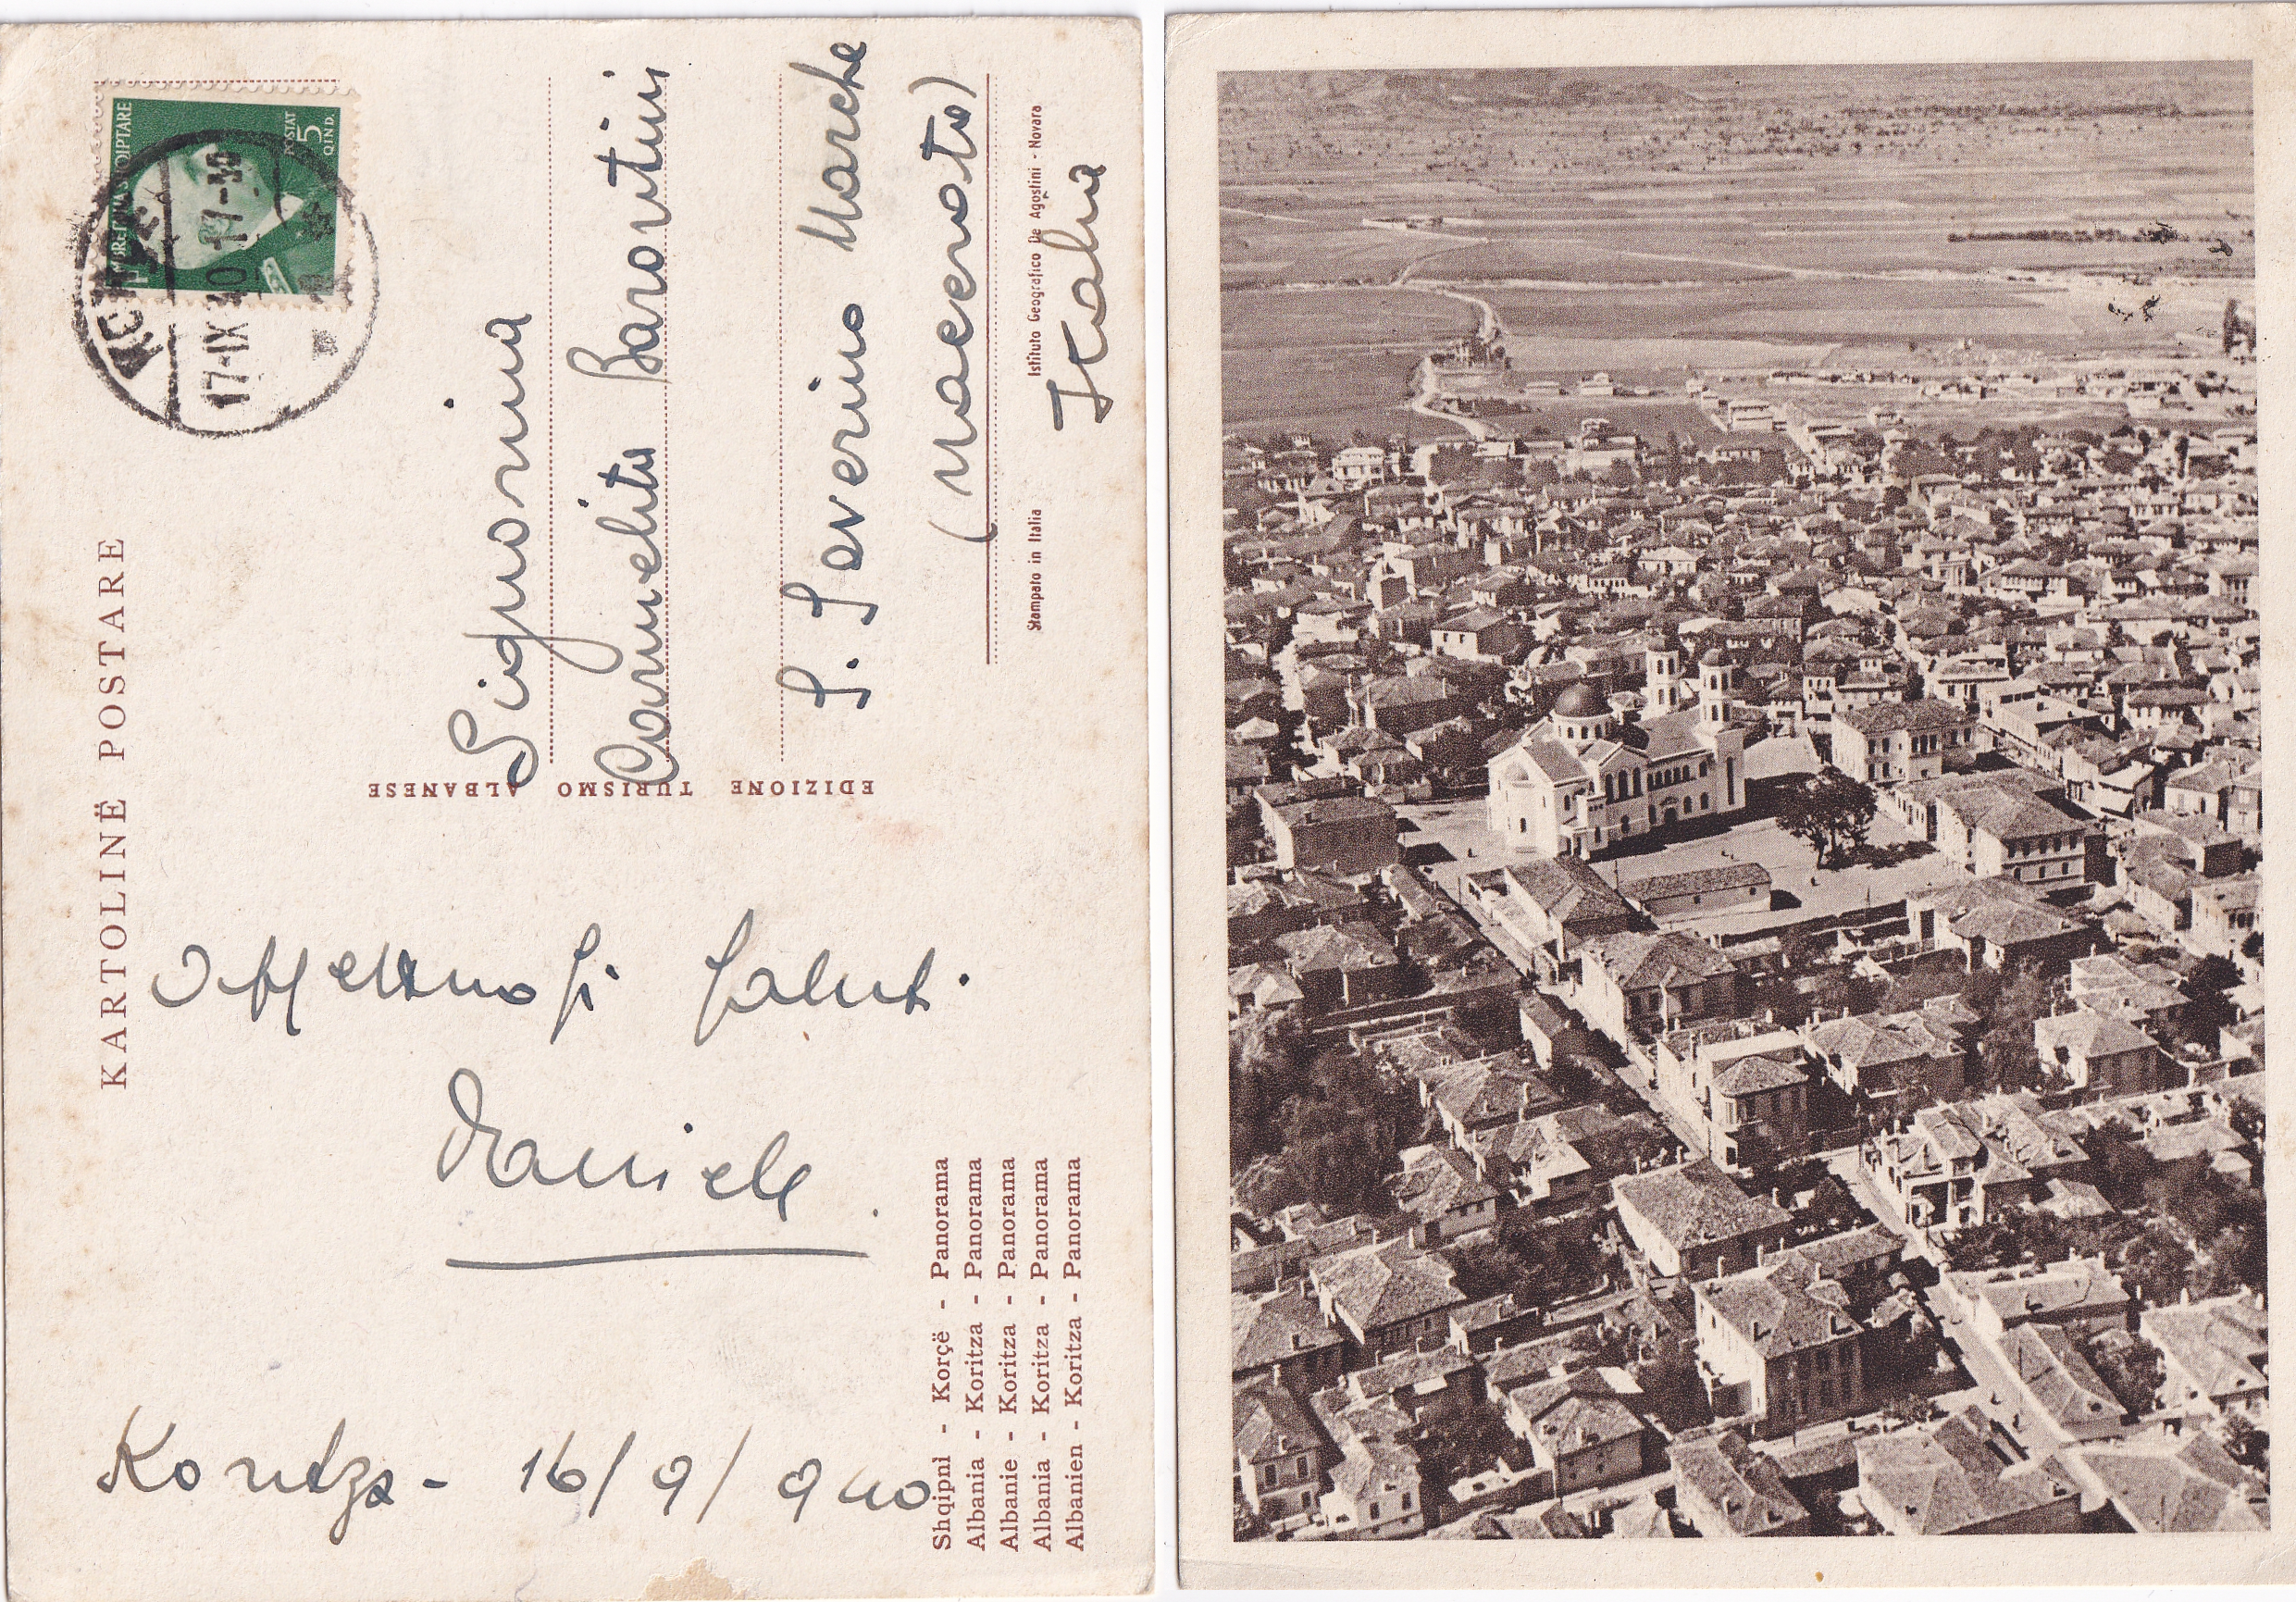 KARTOLINË POSTARE
MBRETNIA SHQIPTARE
POSTAT
5
QIND.
KORÇË
17-IX 40 17-
Koritza - 16/9/940
Affettuosi saluti
Daniele.
Signorina
Carmelita Barontini
S. Severino Marche
(Macerata)
Italia
EDIZIONE TURISMO ALBANESE
Stampato in Italia
Istituto Geografico De Agostini - Novara
Shqipnì - Korçë - Panorama
Albania - Koritza - Panorama
Albanie - Koritza - Panorama
Albania - Koritza - Panorama
Albanien - Koritza - Panorama